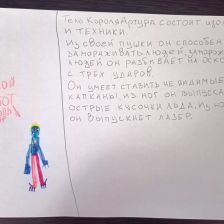 Тело Короля Артура состоит из
и техники.
Из своей пушки он способен
замораживать людей, заморо
людей он разбивает на оско
с трёх ударов.
Он умеет ставить не видимые
капканы, из ног он выпуска
острые кусочки льда, из но
он выпускает лазер.